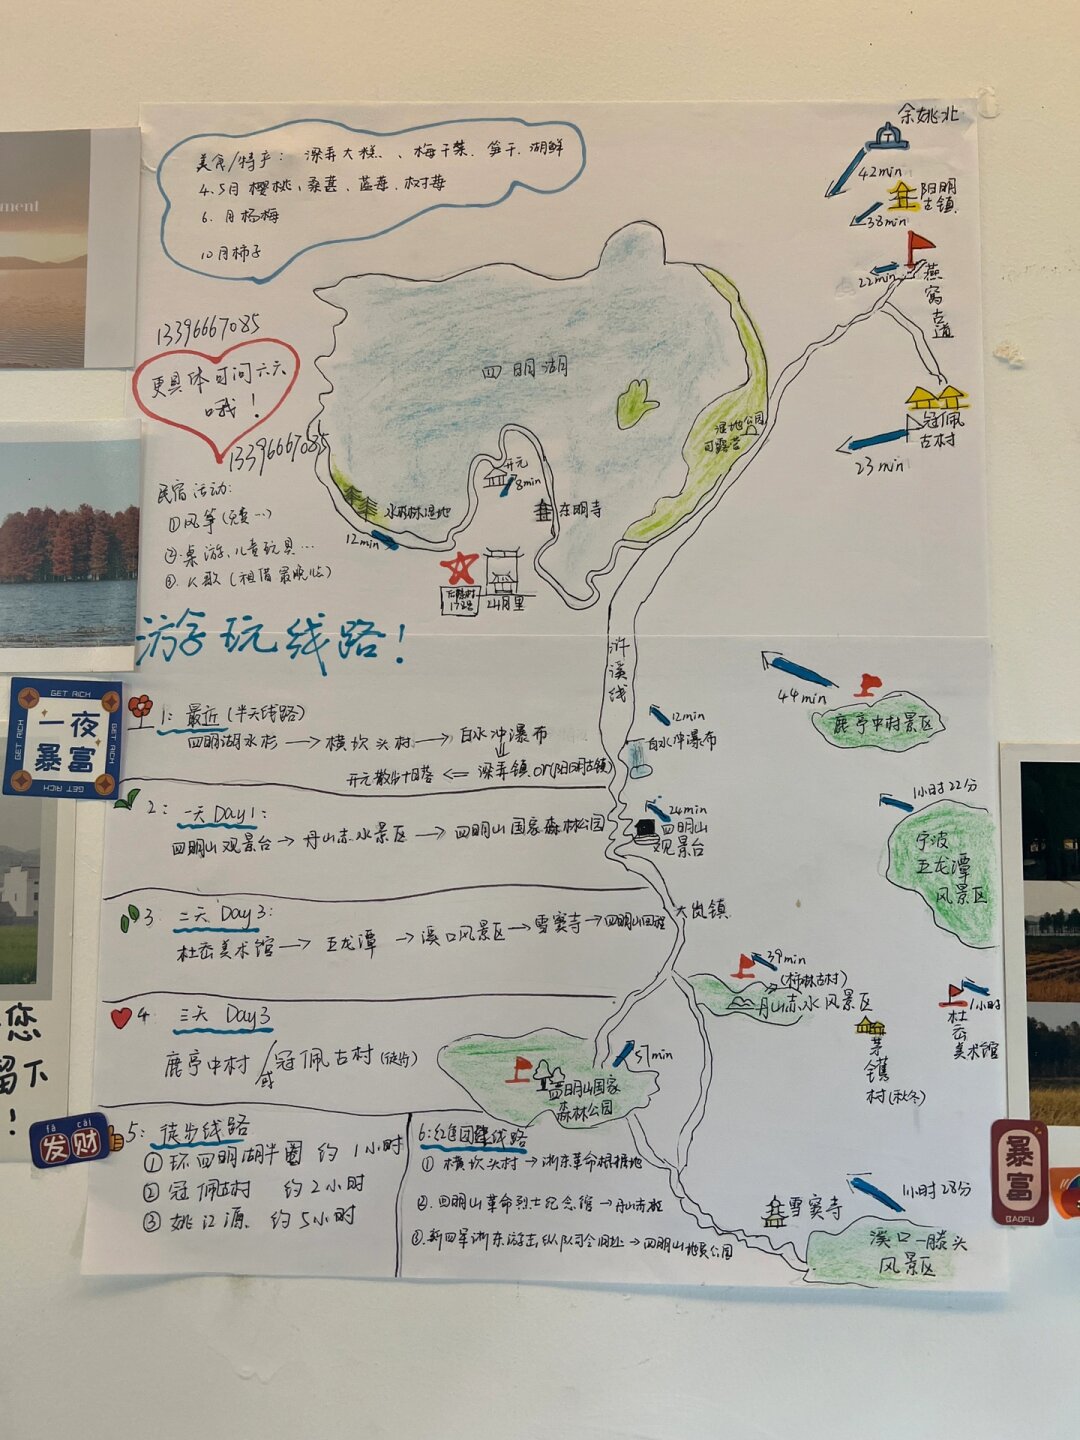 美食/特产: 梁弄大糕、、梅干菜、笋干、湖鲜
4.5月 樱桃、桑葚、蓝莓、树莓
6.月杨梅
10月柿子
13396667085
更具体可问六六
哦!
13396667085
民宿活动:
①风筝(免费…)
②桌游、儿童玩具…
③K歌(租借最晚
游玩线路!
余姚北
42min
阳明
古镇
38min
22min
燕窝古道
冠佩
古村
23min
四明湖
湿地公园
可露营
开元
8min
水杉林湿地
东明寺
12min
山月里
浒溪线
44min
鹿亭中村景区
12min
白水冲瀑布
24min
四明山
观景台
1小时22分
宁波
五龙潭
风景区
大岚镇
39min
(柿林古村)
丹山赤水风景区
1小时
杜岙
美术馆
茅镬
村(秋冬)
57min
四明山国家
森林公园
雪窦寺
1小时28分
溪口一滕头
风景区
1: 最近(半天线路)
四明湖水杉→横坎头村→白水冲瀑布
开元散步+日落 ⇐ 梁弄镇or(阳明古镇)
2: 一天 Day1:
四明山观景台→丹山赤水景区→四明山国家森林公园
3: 二天 Day3:
杜岙美术馆→五龙潭→溪口风景区→雪窦寺→四明山回程
4: 三天 Day3
鹿亭中村/或冠佩古村(徒步)
5: 徒步线路
①环四明湖半圈 约1小时
②冠佩古村 约2小时
③姚江源 约5小时
6:红色团建线路
①横坎头村→浙东革命根据地
②四明山革命烈士纪念馆→丹山赤水
③新四军浙东游击纵队司令旧址→四明山地质公园
ment
GET RICH
一夜
暴富
GET RICH
GET RICH
GET RICH
您
留下
!
fā cái
发财
暴富
BAOFU